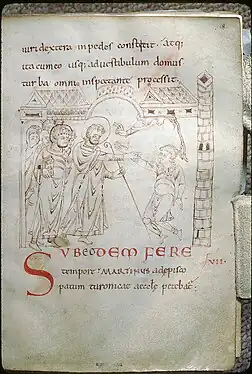 iuri dextera in pedes constitit. atqi
ita cum eo usqi ad vestibulum domus
turba omni inspectante processit.
SUB EODEM FERE
VII.
tempore MARTINUS ad episco
patum turonicae aeccle petebat